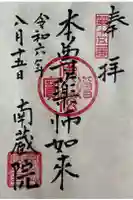 奉拝
本尊薬師如来
南蔵院
令和六年
八月十五日